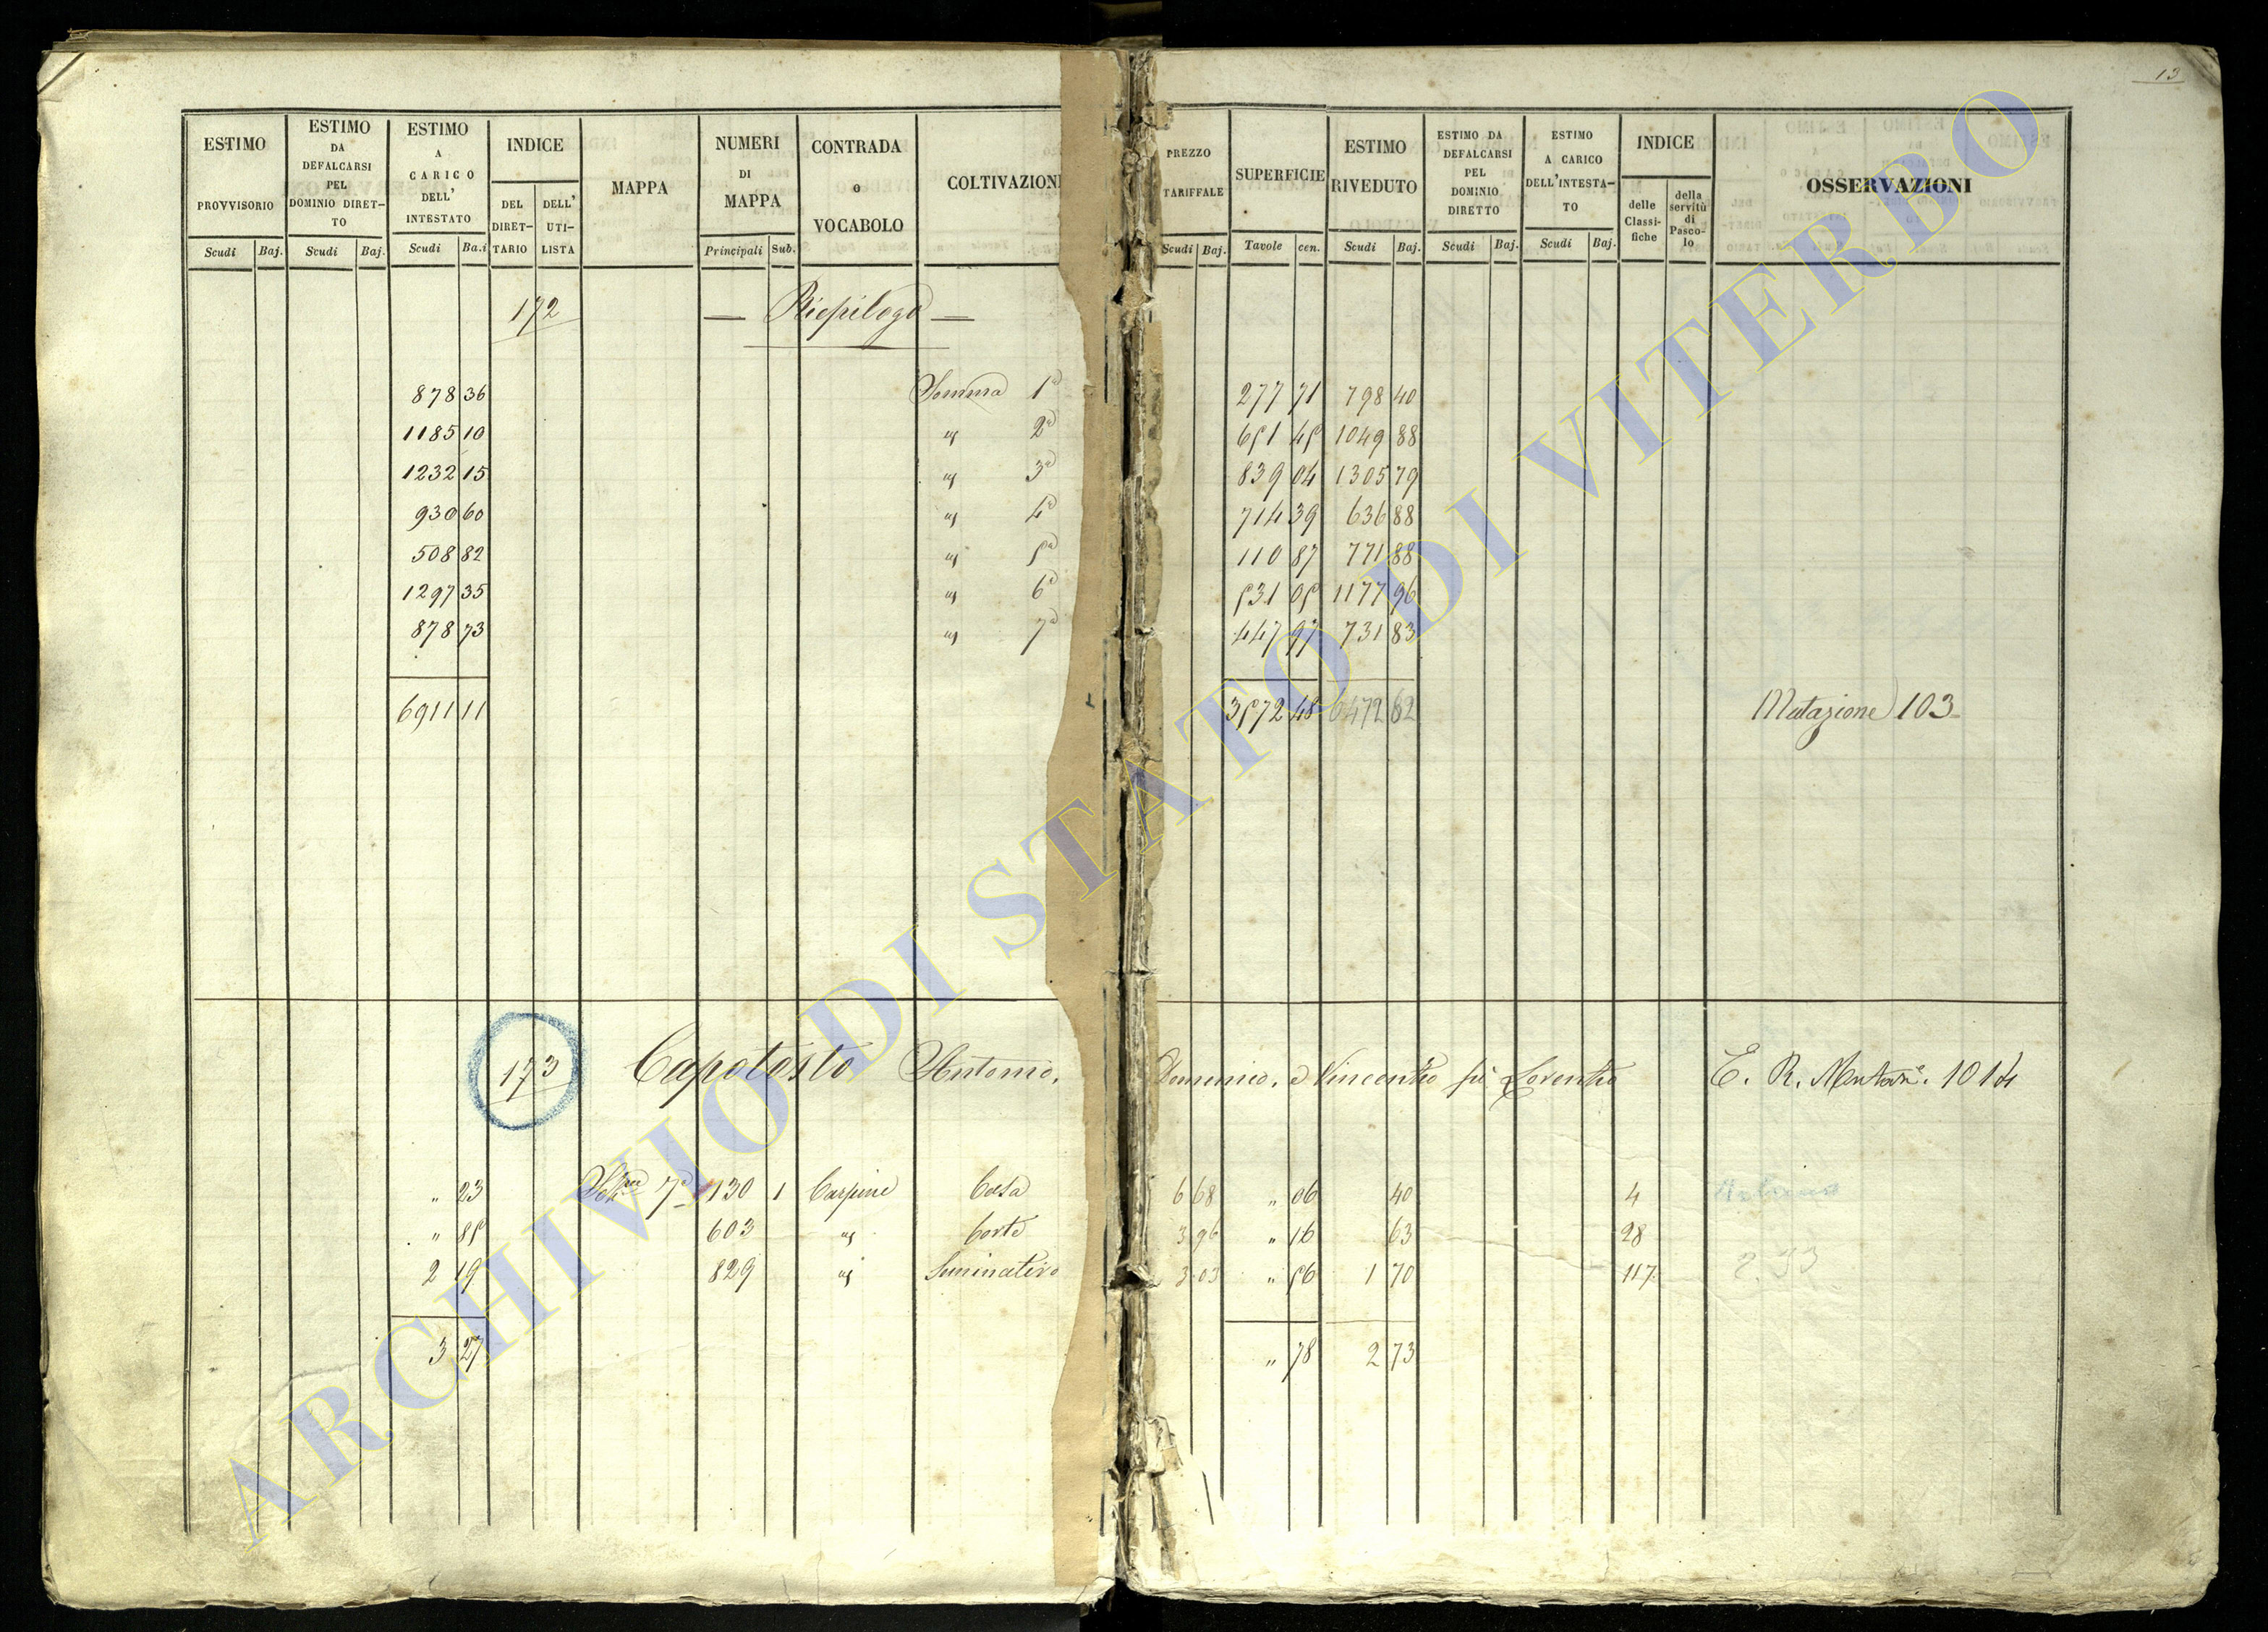 13
ESTIMO PROVVISORIO Scudi Baj. ESTIMO DA DEFALCARSI PEL DOMINIO DIRET-TO Scudi Baj. ESTIMO A CARICO DELL' INTESTATO Scudi Ba.i INDICE DEL DIRET-TARIO DELL' UTI-LISTA MAPPA NUMERI DI MAPPA Principali Sub. CONTRADA o VOCABOLO COLTIVAZION PREZZO TARIFFALE Scudi Baj. SUPERFICIE Tavole cen. ESTIMO RIVEDUTO Scudi Baj. ESTIMO DA DEFALCARSI PEL DOMINIO DIRETTO Scudi Baj. ESTIMO A CARICO DELL'INTESTA-TO Scudi Baj. INDICE delle Classi-fiche della servitù di Pasco-lo OSSERVAZIONI
172 — Riepilogo —
878 36 Somma 1a 277 71 798 40
1185 10 " 2a 651 45 1049 88
1232 15 " 3a 839 04 1305 79
930 60 " 4a 714 39 636 88
508 82 " 5a 110 87 771 88
1297 35 " 6a 531 05 1177 96
878 73 " 7a 447 97 731 83
6911 11 3572 48 6472 62 Mutazione 103
173 Capotosto Antonio, Domenico, e Vincentio fù Lorentio E. R. Mutaz.e 1014
" 23 7a 130 1 Carpine Casa 6 68 " 06 40 4
" 85 603 " Corte 3 96 " 16 63 28
2 19 829 " Seminativo 3 03 " 56 1 70 117
2.93
3 27 " 78 2 73
ARCHIVIO DI STATO DI VITERBO